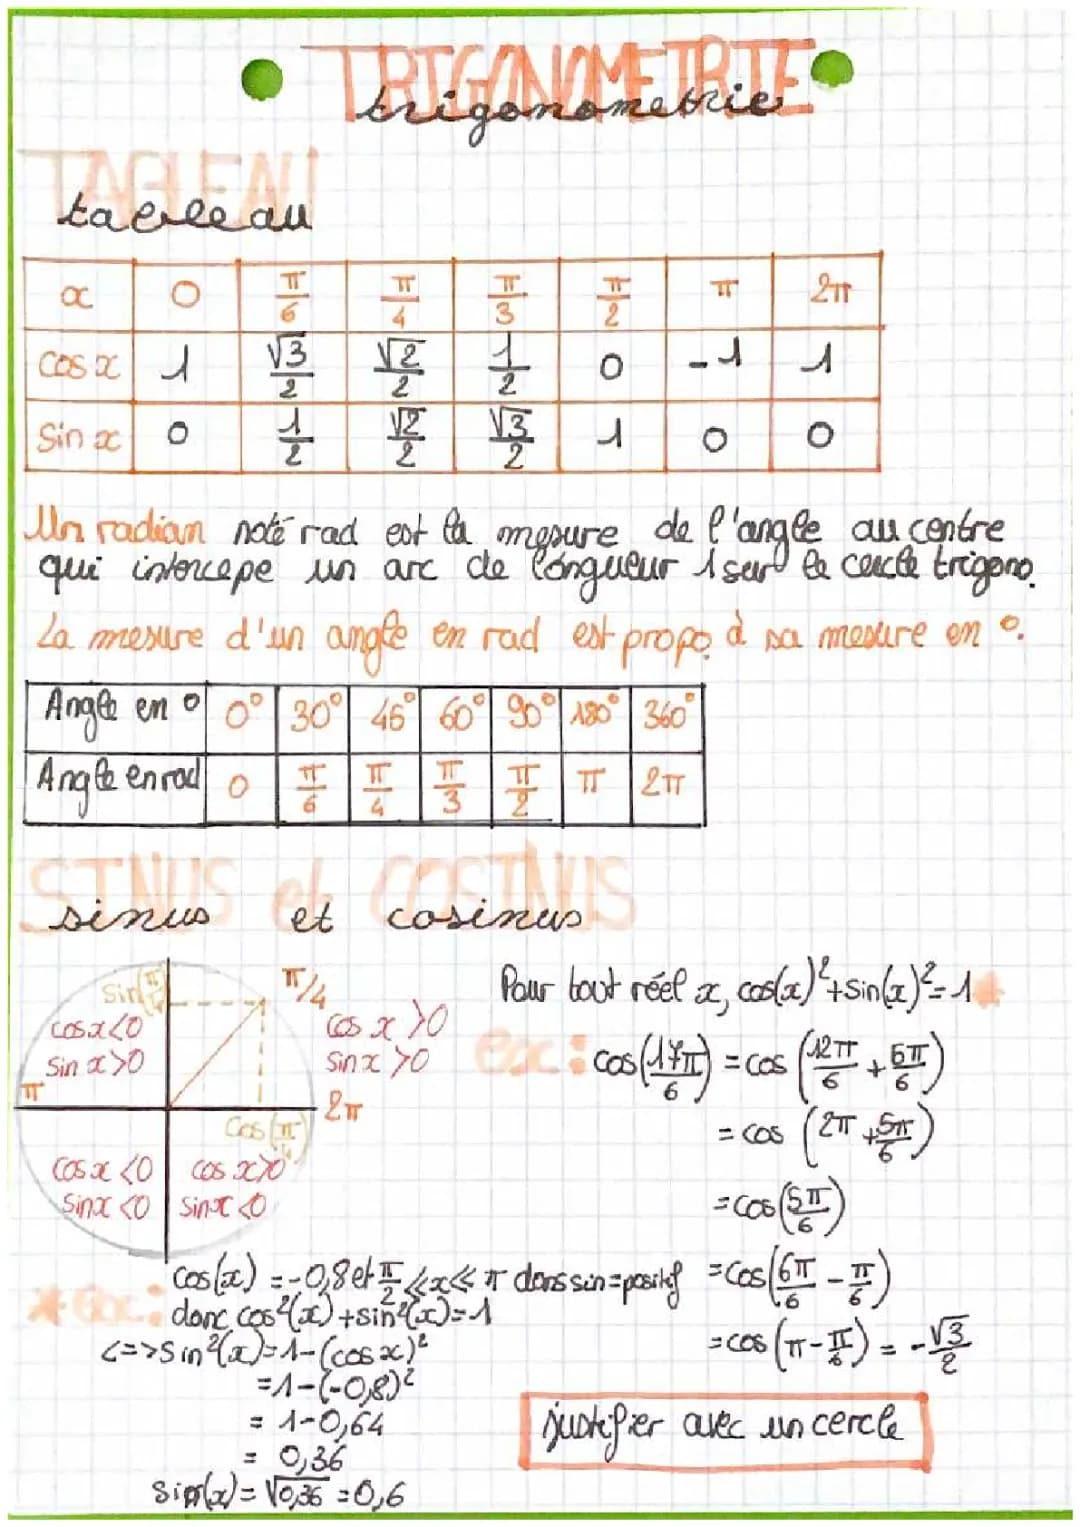 TRIGONOMETRIE
trigonometrie
TABLEAU
tableau
x 0 π/6 π/4 π/3 π/2 π 2π
cos x 1 √3/2 √2/2 1/2 0 -1 1
Sin x 0 1/2 √2/2 √3/2 1 0 0
Un radian noté rad est la mesure de l'angle au centre
qui intercepe un arc de longueur 1 sur le cercle trigono.
La mesure d'un angle en rad est propo à sa mesure en °.
Angle en ° 0° 30° 45° 60° 90° 180° 360°
Angle en rad 0 π/6 π/4 π/3 π/2 π 2π
SINUS et COSINUS
sinus et cosinus
Sin(π/4)
π/4
cosx<0
sin x>0
cos x >0
sin x >0
π
2π
Cos(π/4)
cos x <0
sinx <0
cos x>0
sinx <0
Pour tout réel x, cos(x)²+sin(x)²=1 *
ex: cos(17π/6) = cos (12π/6 + 5π/6)
= cos (2π + 5π/6)
= cos(5π/6)
= cos(6π/6 - π/6)
= cos (π - π/6) = -√3/2
justifier avec un cercle
*Ex: cos(x) = -0,8 et π/2 ⩽x⩽ π dans sin=positif
donc cos²(x)+sin²(x)=1
<=>Sin²(x)=1-(cos x)²
=1-(-0,8)²
= 1-0,64
= 0,36
Sin(x)= √0,36 =0,6